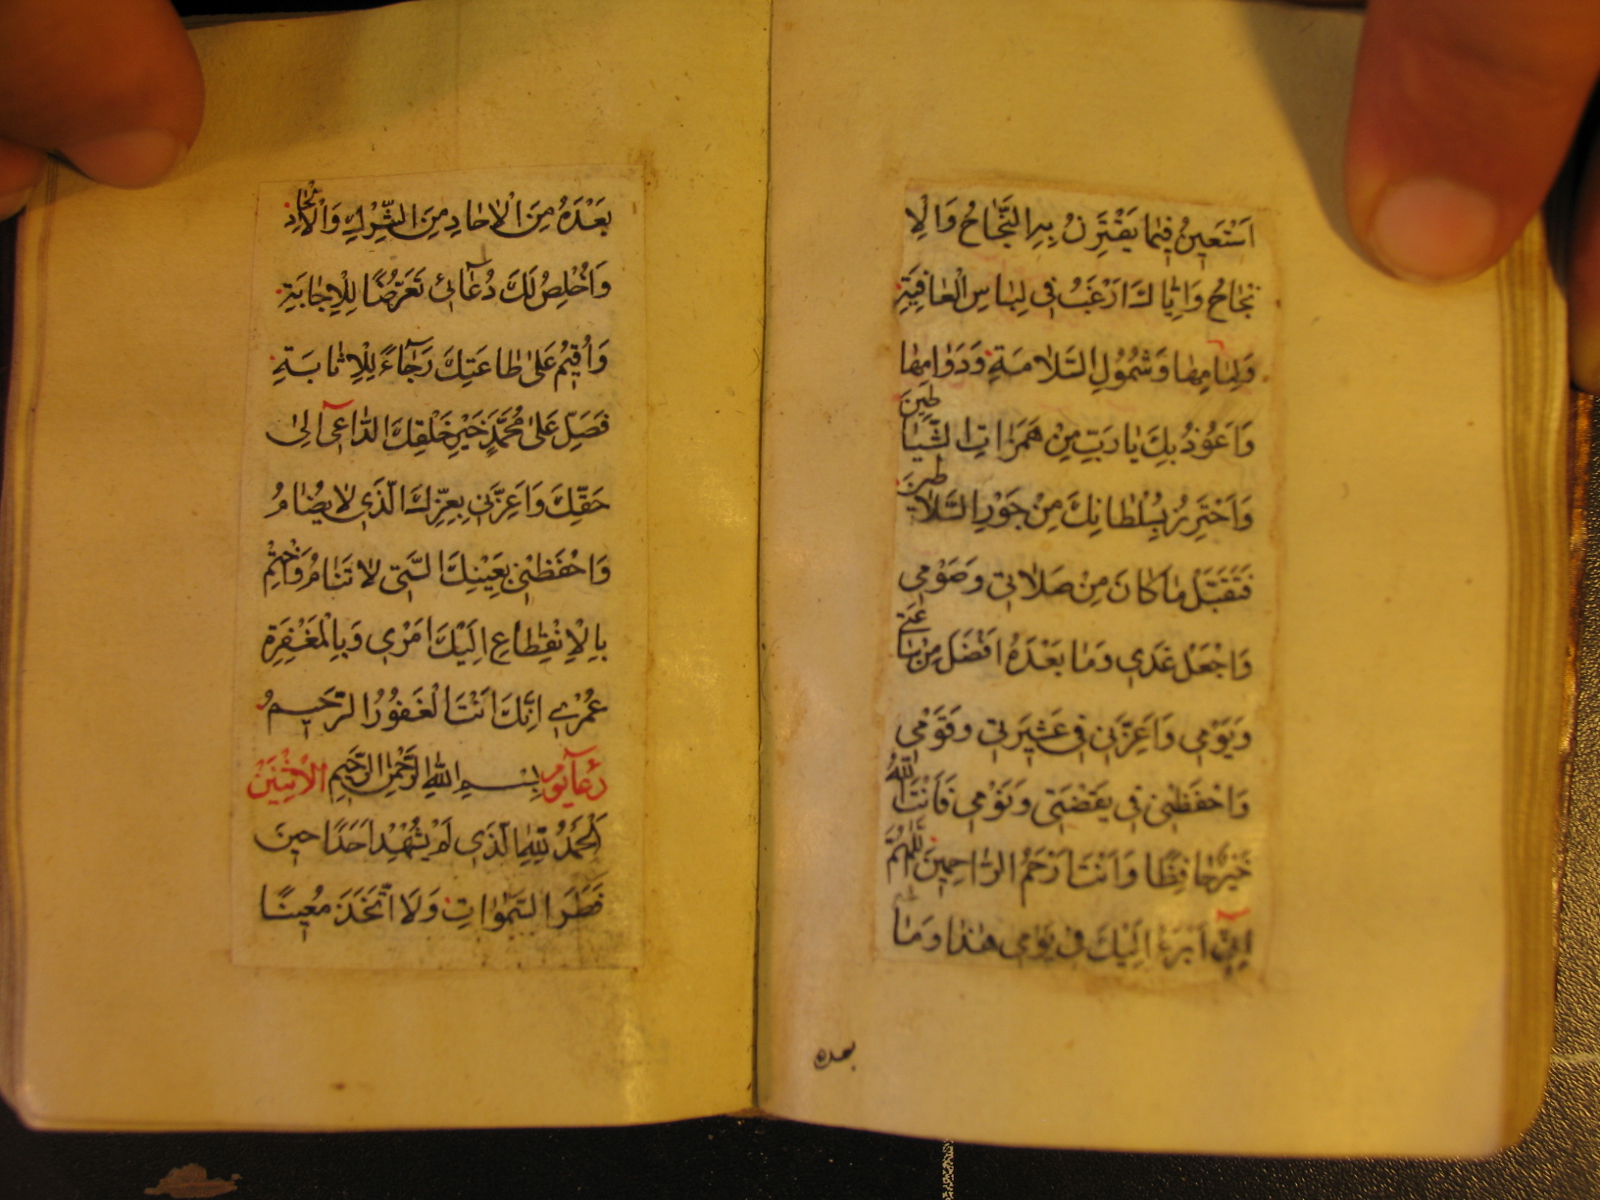 اَسْتَعِينُ فِيمَا يَقْتَرِنُ بِهِ النَّجَاحُ وَالْاِ
نْجَاحُ وَاِيَّاكَ اَرْغَبُ فِي لِبَاسِ الْعَافِيَةِ
وَتَمَامِهَا وَشُمُولِ السَّلَامَةِ وَدَوَامِهَا
وَاَعُوذُ بِكَ يَا رَبِّ مِنْ هَمَزَاتِ الشَّيَاطِينَ
وَاَحْتَرِزُ بِسُلْطَانِكَ مِنْ جَوْرِ السَّلَاطِينَ
فَتَقَبَّلْ مَا كَانَ مِنْ صَلَاتِي وَصَوْمِي
وَاجْعَلْ غَدِي وَمَا بَعْدَهُ اَفْضَلَ مِنْ سَاعَتِي
وَيَوْمِي وَاَعِزَّنِي فِي عَشِيرَتِي وَقَوْمِي
وَاحْفَظْنِي فِي يَقْضَتِي وَنَوْمِي فَاَنْتَ اللّٰهُ
خَيْرٌ حَافِظًا وَاَنْتَ اَرْحَمُ الرَّاحِمِينَ اَللّٰهُمَّ
اِنِّي اَبْرَءُ اِلَيْكَ فِي يَوْمِي هٰذَا وَمَا
بعده
بَعْدَهُ مِنَ الْاٰحَادِ مِنَ الشِّرْكِ وَالْاِلْحَادِ
وَاُخْلِصُ لَكَ دُعَائِي تَعَرُّضًا لِلْاِجَابَةِ
وَاُقِيمُ عَلٰى طَاعَتِكَ رَجَاءً لِلْاِثَابَةِ
فَصَلِّ عَلٰى مُحَمَّدٍ خَيْرِ خَلْقِكَ الدَّاعِي اِلٰى
حَقِّكَ وَاَعِزَّنِي بِعِزِّكَ الَّذِي لَا يُضَامُ
وَاحْفَظْنِي بِعَيْنِكَ الَّتِي لَا تَنَامُ وَاخْتِمْ
بِالْاِنْقِطَاعِ اِلَيْكَ اَمْرِي وَبِالْمَغْفِرَةِ
عُمْرِي اِنَّكَ اَنْتَ الْغَفُورُ الرَّحِيمُ
دُعَآءِ يَوْمِ بِسْمِ اللّٰهِ الرَّحْمٰنِ الرَّحِيمِ الْاِثْنَيْنِ
اَلْحَمْدُ لِلّٰهِ الَّذِي لَمْ يُشْهِدْ اَحَدًا حِينَ
فَطَرَ السَّمٰوَاتِ وَلَا اتَّخَذَ مُعِينًا